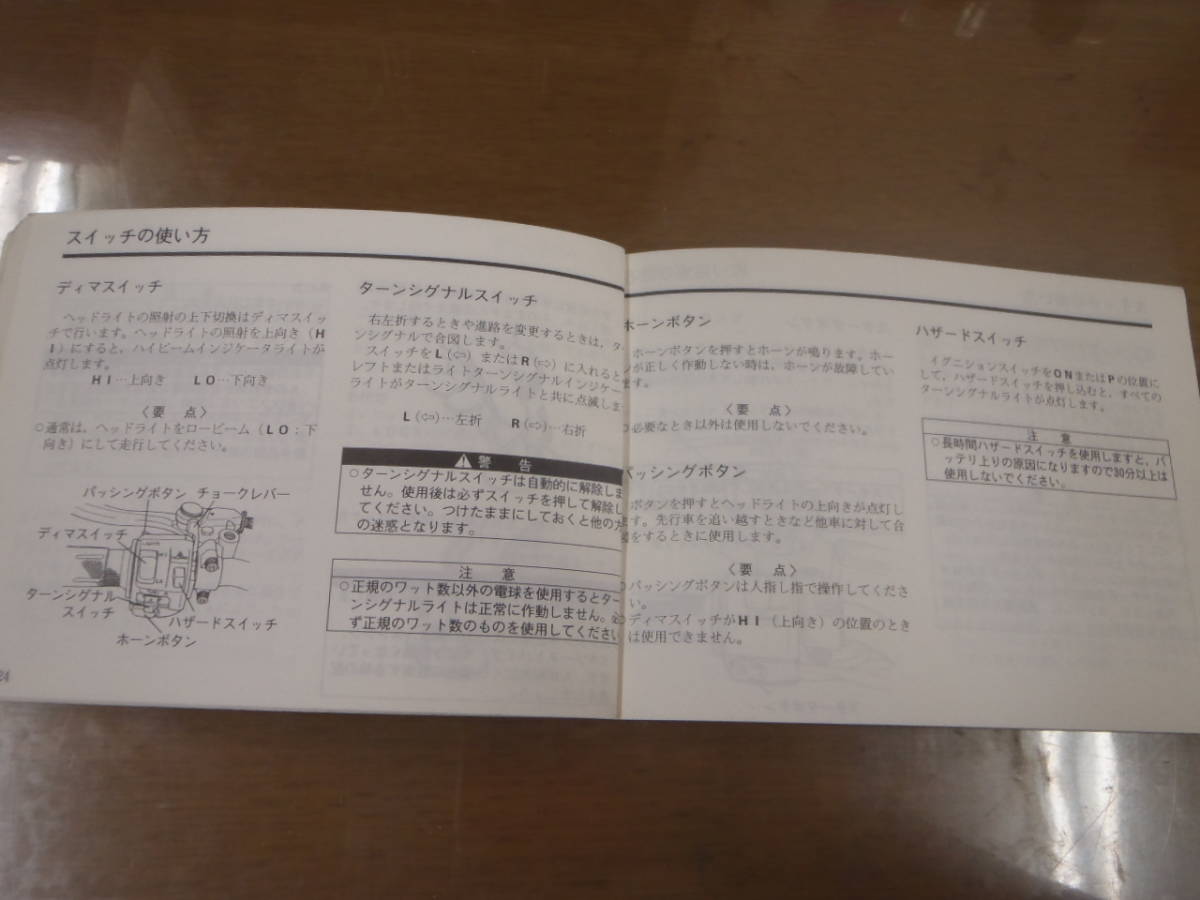 スイッチの使い方
ディマスイッチ
ヘッドライトの照射の上下切換はディマスイッ
チで行います。ヘッドライトの照射を上向き（H
I）にすると、ハイビームインジケータライトが
点灯します。
HI…上向き　LO…下向き
〈要　点〉
○通常は、ヘッドライトをロービーム（LO：下
向き）にして走行してください。
パッシングボタン　チョークレバー
ディマスイッチ
ターンシグナル
スイッチ
ハザードスイッチ
ホーンボタン
24
ターンシグナルスイッチ
右左折するときや進路を変更するときは、タ
ンシグナルで合図します。
スイッチをL（⇦）またはR（⇨）に入れると
レフトまたはライトターンシグナルインジケ
ライトがターンシグナルライトと共に点滅しま
L（⇦）…左折　R（⇨）…右折
⚠警　告
○ターンシグナルスイッチは自動的に解除しま
せん。使用後は必ずスイッチを押して解除し
てください。つけたままにしておくと他の方
の迷惑となります。
注　意
○正規のワット数以外の電球を使用するとター
ンシグナルライトは正常に作動しません。必
ず正規のワット数のものを使用してください
ホーンボタン
ホーンボタンを押すとホーンが鳴ります。ホー
ンが正しく作動しない時は、ホーンが故障してい
ます。
〈要　点〉
○必要なとき以外は使用しないでください。
パッシングボタン
ボタンを押すとヘッドライトの上向きが点灯し
ます。先行車を追い越すときなど他車に対して合
図をするときに使用します。
〈要　点〉
○パッシングボタンは人指し指で操作してくださ
い。
○ディマスイッチがHI（上向き）の位置のとき
は使用できません。
ハザードスイッチ
イグニションスイッチをONまたはPの位置に
して、ハザードスイッチを押し込むと、すべての
ターンシグナルライトが点灯します。
注　意
○長時間ハザードスイッチを使用しますと、バ
ッテリ上りの原因になりますので30分以上は
使用しないでください。